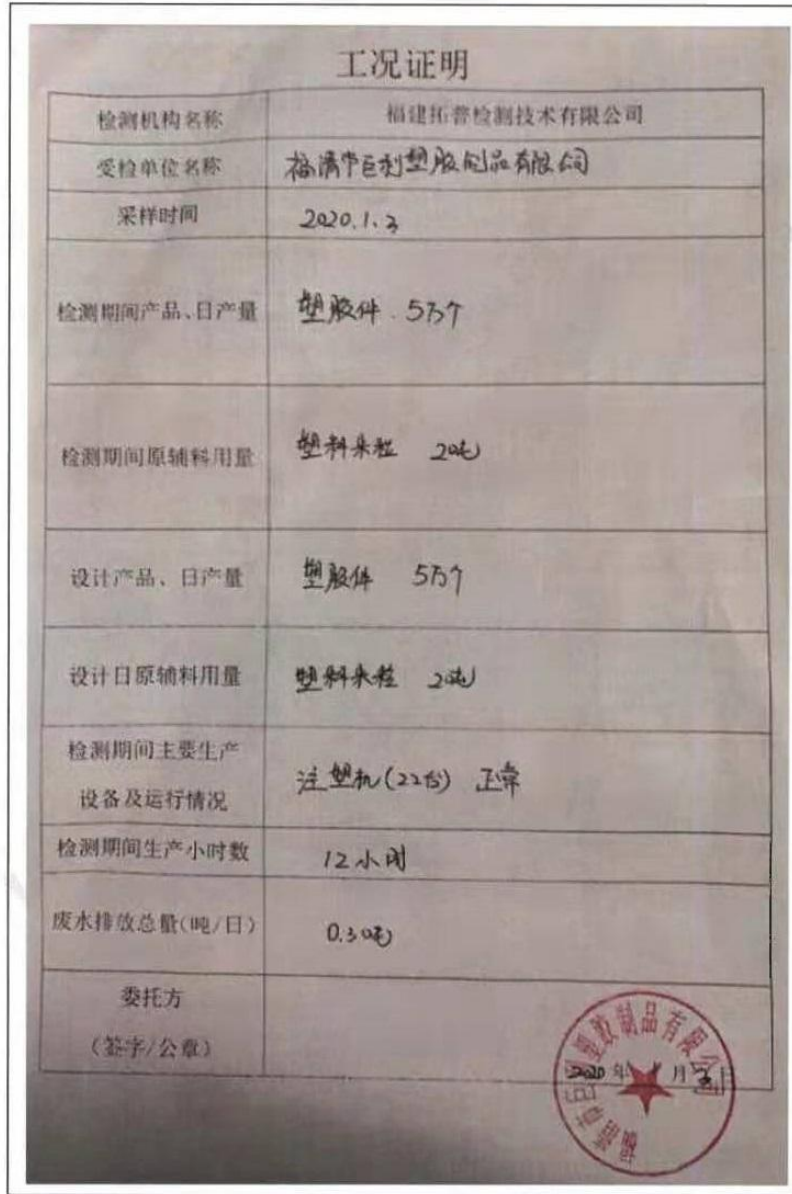 工况证明
检测机构名称 福建拓普检测技术有限公司
受检单位名称 福清市巨利塑胶制品有限公司
采样时间 2020.1.3
检测期间产品、日产量 塑胶件 . 5万个
检测期间原辅料用量 塑料米粒 2吨
设计产品、日产量 塑胶件 5万个
设计日原辅料用量 塑料米粒 2吨
检测期间主要生产
设备及运行情况 注塑机(22台) 正常
检测期间生产小时数 12小时
废水排放总量(吨/日) 0.3吨
委托方
(签字/公章)
福清市巨利塑胶制品有限公司
2020年1月3日